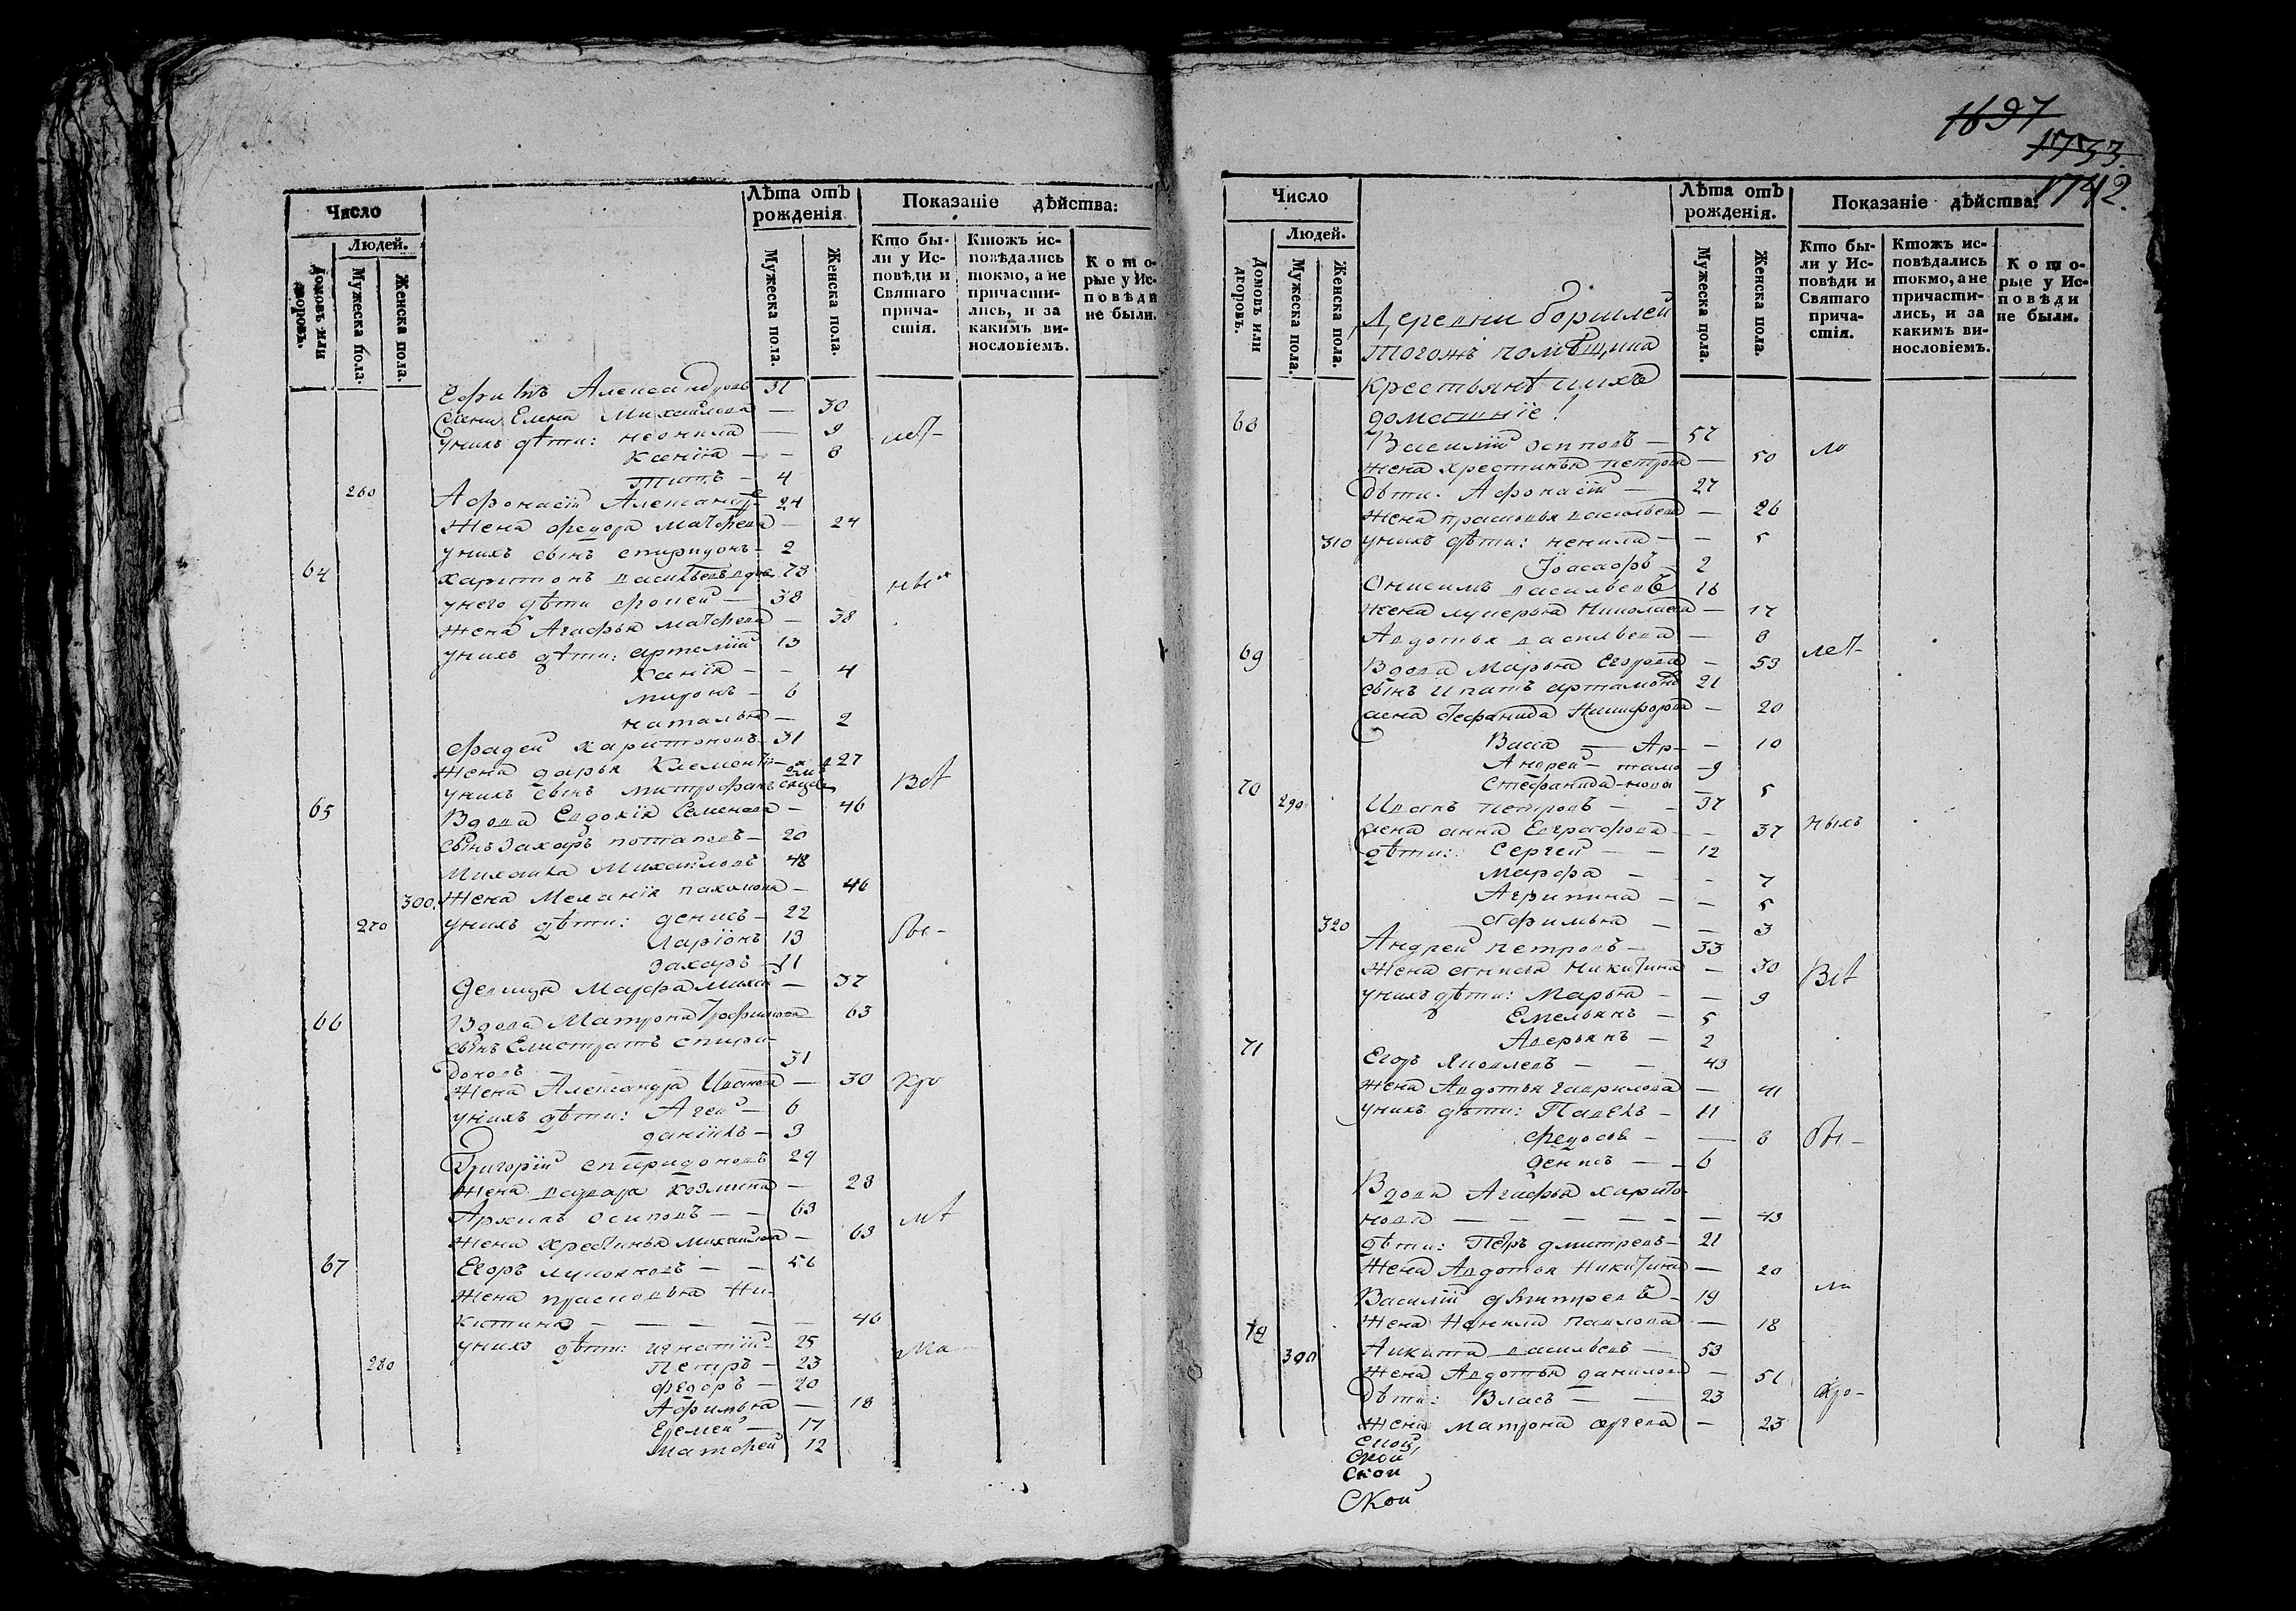 Число
Людей.
Домовъ или дворовъ.
Мужеска пола.
Женска пола.
Лѣта отъ рожденія
Мужеска пола.
Женска пола.
Показаніе дѣйства:
Кто бы-
ли у Ис-
повѣди и
Святаго
прича-
стія.
Ктожъ ис-
повѣдались
токмо, а не
причасти-
лись, и за
какимъ ви-
нословіемъ.
Кото-
рые у Ис-
повѣди
не были.
Ефимъ Александровъ 31
Жена Елена Михайлова — 30
у нихъ дѣти: неонила — 9
Ксенія — — 6
Титъ — 4
260 Афонасій Александр 24
Жена федора матфеева — 24
у нихъ сынъ спиридонъ — 2
64 харитонъ васильевъ вдов 73
у него дѣти фокей — 38
Жена Агафья матфеева — 38
у нихъ дѣти: артемій 13
Ксенія — — 4
миронъ — 6
наталья — 2
фадей харитоновъ — 31
Жена дарья Клементь — 27
у нихъ сынъ митрофанъ
65 Вдова Евдокія Семенова — 46
сынъ Захаръ потаповъ — 20
Михаила Михайловъ 48
300. Жена Меланія пахомова — 46
270 у нихъ дѣти: денисъ — 22
Ларіонъ 13
Захаръ — 11
Девица Марфа миха — 37
66 Вдова Матрона Трофимова 63
сынъ Елистратъ спири-
доновъ — — 31
Жена Александра Иванова — 30
у нихъ дѣти: Агей — 6
данійлъ — 3
Григорій спиридоновъ 29
Жена варвара козмина — 23
Архипъ осиповъ — — 63
Жена хрестинья михайлова — 63
67 Егоръ лукояновъ — — 56
Жена прасковья Ни-
китина — — — — — 46
у нихъ дѣти: игнатій — 25
280 Петръ — 23
федоръ — 20
Афимья — 18
Еремей — 17
Матфей 12
1697
1733.
1742.
Число
Людей.
Домовъ или дворовъ.
Мужеска пола.
Женска пола.
Лѣта отъ рожденія.
Мужеска пола.
Женска пола.
Показаніе дѣйства:
Кто бы-
ли у Ис-
повѣди и
Святаго
прича-
стія.
Ктожъ ис-
повѣдались
токмо, а не
причасти-
лись, и за
какимъ ви-
нословіемъ.
Кото-
рые у Ис-
повѣди
не были.
Деревни
тогожъ помѣщика
крестьянѣ ихъ
домашніе!
68 Василій осиповъ — 57
жена хрестинья петрова — 50
Дѣти: Афонасій — 27
жена прасковья васильева — 26
310 у нихъ дѣти: ненила — — 5
Іоасафъ — 2
Онисимъ васильевъ 16
жена лукерья Николаева — 17
Авдотья васильева — 8
69 Вдова Марья Егорова — 53
сынъ ипатъ артамоно 21
жена стефанида Никифорова — 20
Васса — Ар- — 10
Андрей — тамо — 9
стефанида — новы — 5
70 290 Иванъ петровъ — — 37
жена анна Евграфова — — 37
дѣти: Сергей — — 12
Марфа — — 7
Агрипина — — 5
320 Афимья — — 3
Андрей петровъ — 33
Жена Никитина — 30
у нихъ дѣти: Марья — — 9
Емельянъ — 5
Аверьянъ — 2
71 Егоръ Яковлевъ — — 43
Жена Авдотья гаврилова — 41
у нихъ дѣти: Павелъ — 11
федосья — — 8
денисъ — — 6
Вдова Агафья харито-
нова — — — — — — 43
дѣти: Петръ дмитревъ — 21
Жена Авдотья Никитина — 20
Василій дмитревъ — 19
Жена Ненила павлова — 18
72 300 Аникита васильевъ — 53
Жена Авдотья данилова — 51
Дѣти: Власъ — — 23
Жена матрона сергева — 23
Ской
Ской
Ской